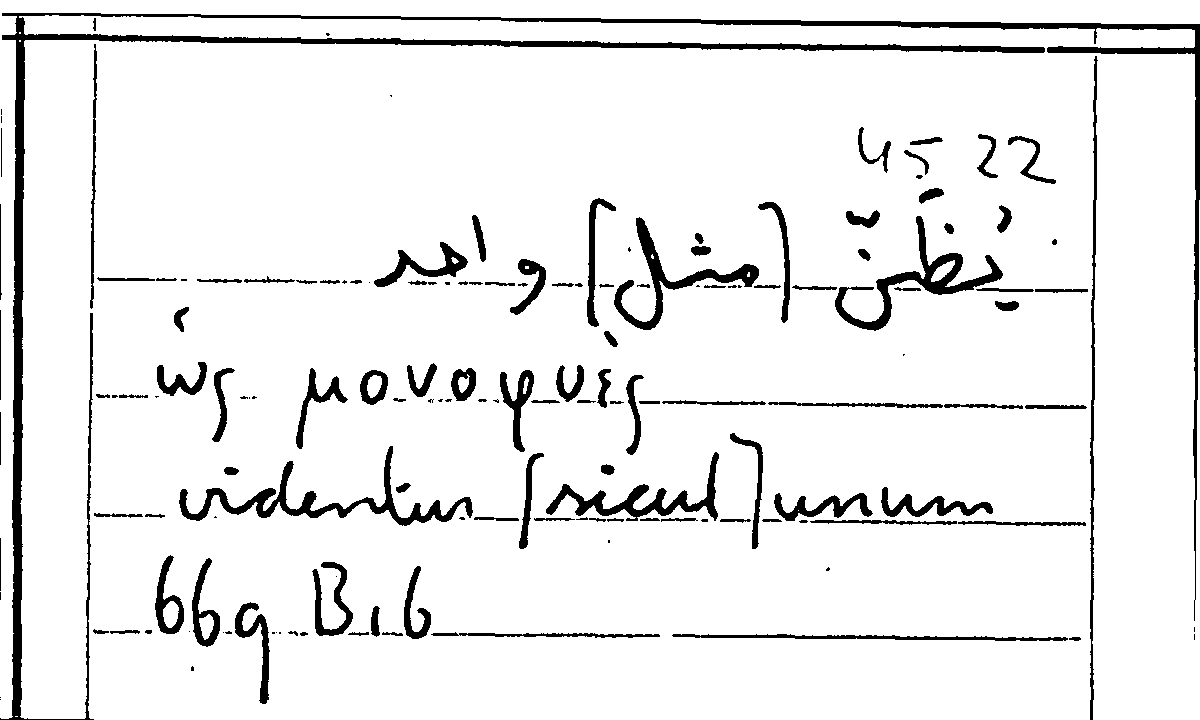 45 22
يُظَنّ [مثل] واحد
ὡς μονοφυὲς
videntur [sicut] unum
669 B 16